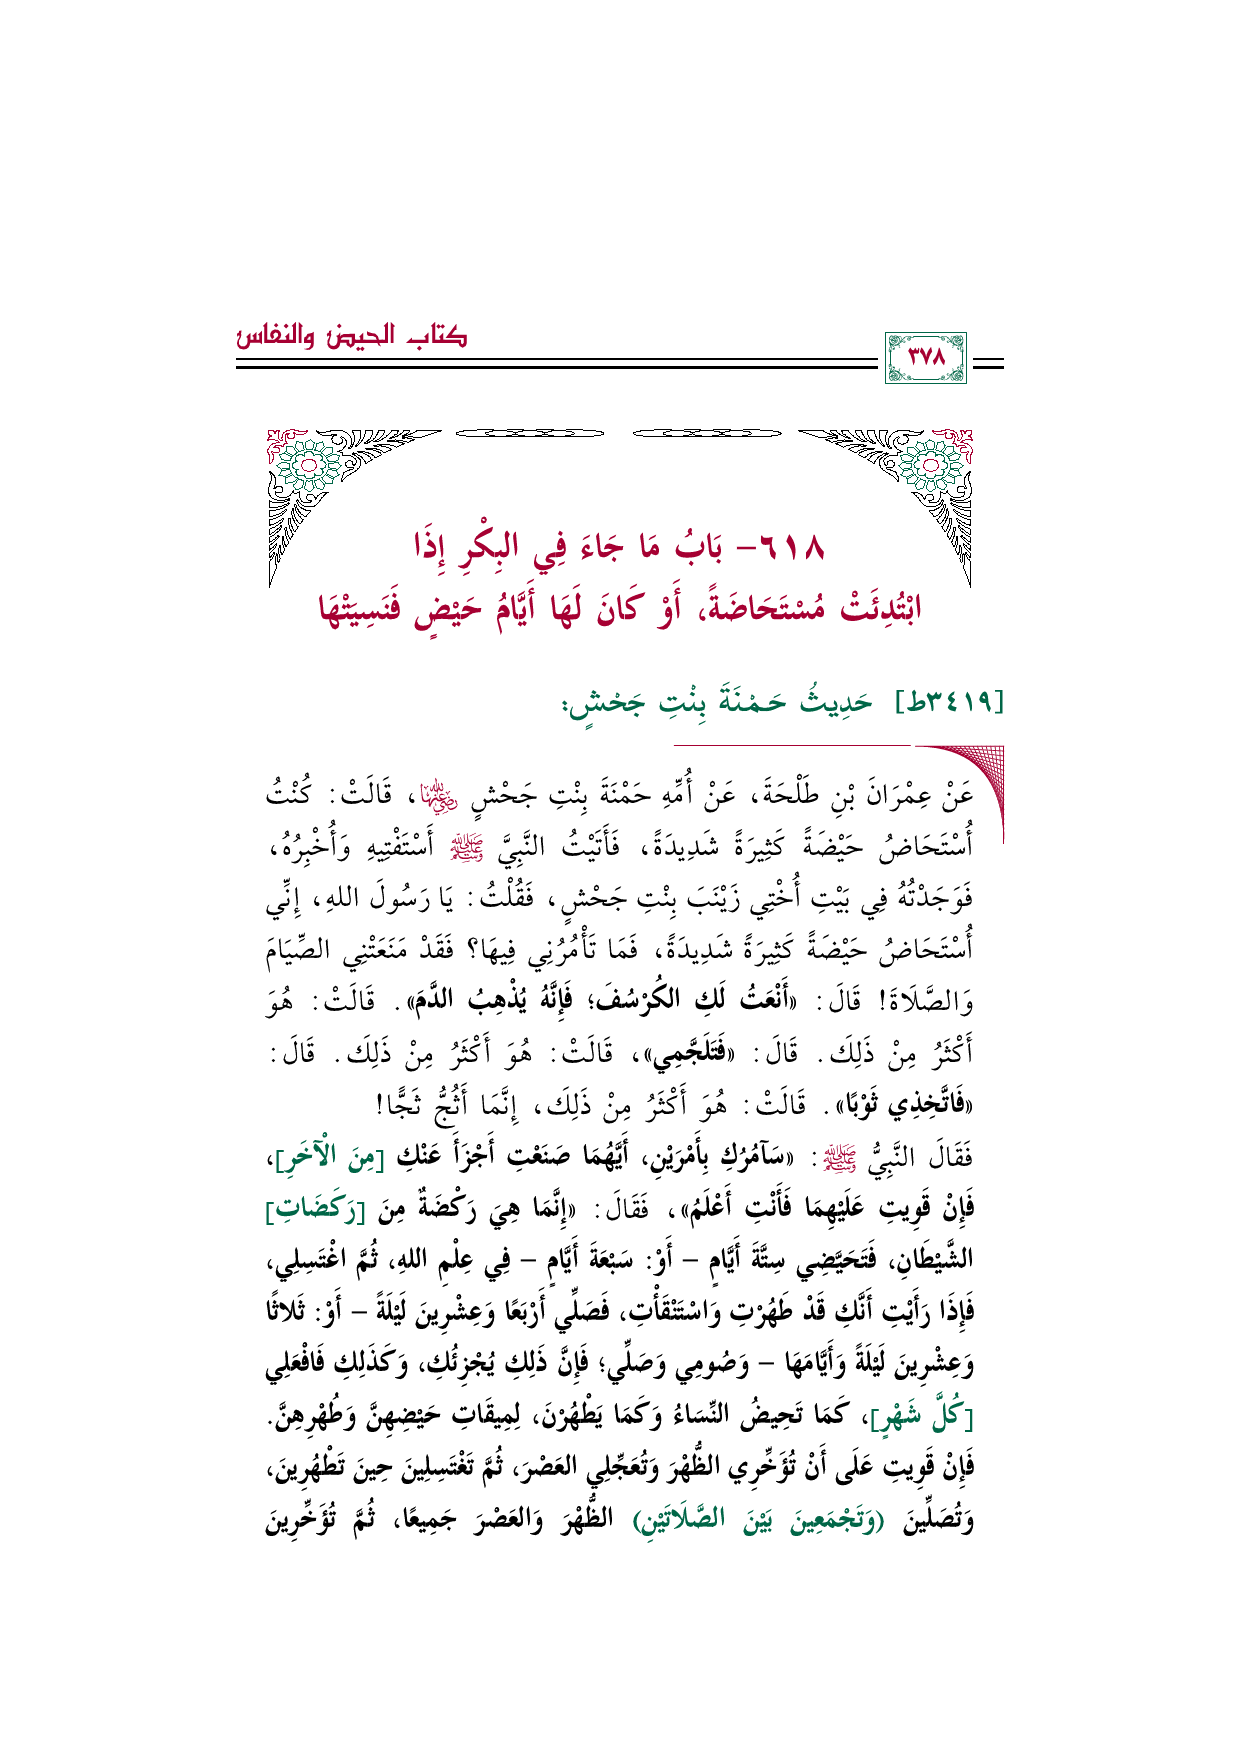 كتاب الحيض والنفاس
٣٧٨
٦١٨- بَابُ مَا جَاءَ فِي البِكْرِ إِذَا
ابْتُدِئَتْ مُسْتَحَاضَةً، أَوْ كَانَ لَهَا أَيَّامُ حَيْضٍ فَنَسِيَتْهَا
[٣٤١٩ط] حَدِيثُ حَمْنَةَ بِنْتِ جَحْشٍ:
عَنْ عِمْرَانَ بْنِ طَلْحَةَ، عَنْ أُمِّهِ حَمْنَةَ بِنْتِ جَحْشٍ رضي الله عنها، قَالَتْ: كُنْتُ
أُسْتَحَاضُ حَيْضَةً كَثِيرَةً شَدِيدَةً، فَأَتَيْتُ النَّبِيَّ ﷺ أَسْتَفْتِيهِ وَأُخْبِرُهُ،
فَوَجَدْتُهُ فِي بَيْتِ أُخْتِي زَيْنَبَ بِنْتِ جَحْشٍ، فَقُلْتُ: يَا رَسُولَ اللهِ، إِنِّي
أُسْتَحَاضُ حَيْضَةً كَثِيرَةً شَدِيدَةً، فَمَا تَأْمُرُنِي فِيهَا؟ فَقَدْ مَنَعَتْنِي الصِّيَامَ
وَالصَّلَاةَ! قَالَ: «أَنْعَتُ لَكِ الكُرْسُفَ؛ فَإِنَّهُ يُذْهِبُ الدَّمَ». قَالَتْ: هُوَ
أَكْثَرُ مِنْ ذَلِكَ. قَالَ: «فَتَلَجَّمِي»، قَالَتْ: هُوَ أَكْثَرُ مِنْ ذَلِكَ. قَالَ:
«فَاتَّخِذِي ثَوْبًا». قَالَتْ: هُوَ أَكْثَرُ مِنْ ذَلِكَ، إِنَّمَا أَثُجُّ ثَجًّا!
فَقَالَ النَّبِيُّ ﷺ: «سَآمُرُكِ بِأَمْرَيْنِ، أَيَّهُمَا صَنَعْتِ أَجْزَأَ عَنْكِ [مِنَ الْآخَرِ]،
فَإِنْ قَوِيتِ عَلَيْهِمَا فَأَنْتِ أَعْلَمُ»، فَقَالَ: «إِنَّمَا هِيَ رَكْضَةٌ مِنَ [رَكَضَاتِ]
الشَّيْطَانِ، فَتَحَيَّضِي سِتَّةَ أَيَّامٍ – أَوْ: سَبْعَةَ أَيَّامٍ – فِي عِلْمِ اللهِ، ثُمَّ اغْتَسِلِي،
فَإِذَا رَأَيْتِ أَنَّكِ قَدْ طَهُرْتِ وَاسْتَنْقَأْتِ، فَصَلِّي أَرْبَعًا وَعِشْرِينَ لَيْلَةً – أَوْ: ثَلاثًا
وَعِشْرِينَ لَيْلَةً وَأَيَّامَهَا – وَصُومِي وَصَلِّي؛ فَإِنَّ ذَلِكِ يُجْزِئُكِ، وَكَذَلِكِ فَافْعَلِي
[كُلَّ شَهْرٍ]، كَمَا تَحِيضُ النِّسَاءُ وَكَمَا يَطْهُرْنَ، لِمِيقَاتِ حَيْضِهِنَّ وَطُهْرِهِنَّ.
فَإِنْ قَوِيتِ عَلَى أَنْ تُؤَخِّرِي الظُّهْرَ وَتُعَجِّلِي العَصْرَ، ثُمَّ تَغْتَسِلِينَ حِينَ تَطْهُرِينَ،
وَتُصَلِّينَ (وَتَجْمَعِينَ بَيْنَ الصَّلَاتَيْنِ) الظُّهْرَ وَالعَصْرَ جَمِيعًا، ثُمَّ تُؤَخِّرِينَ